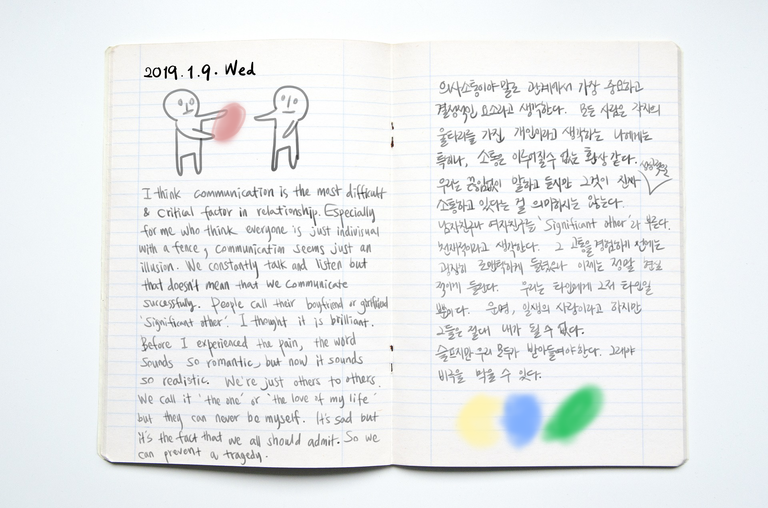 2019.1.9. Wed
I think communication is the most difficult
& critical factor in relationship. Especially
for me who think everyone is just indivisual
with a fence, communication seems just an
illusion. We constantly talk and listen but
that doesn't mean that we communicate
successfully. People call their boyfriend or girlfriend
'Significant other'. I thought it is brilliant.
Before I experienced the pain, the word
sounds so romantic, but now it sounds
so realistic. We're just others to others.
We call it 'the one' or 'the love of my life'
but they can never be myself. It's sad but
it's the fact that we all should admit. So we
can prevent a tragedy.
의사소통이야말로 관계에서 가장 중요하고
결정적인 요소라고 생각한다. 모든 사람은 각자의
울타리를 가진 개인이라고 생각하는 나에게는
특히나, 소통은 이루어질 수 없는 환상 같다.
우리는 끊임없이 말하고 듣지만 그것이 진짜
성공적으로
소통하고 있다는 걸 의미하지는 않는다.
남자친구나 여자친구를 'Significant other'라 부른다.
천재적이라고 생각한다. 그 고통을 경험하기 전에는
굉장히 로맨틱하게 들렸으나 이제는 정말 현실
적이게 들린다. 우리는 타인에게 그저 타인일
뿐이다. 운명, 일생의 사랑이라고 하지만
그들은 절대 내가 될 수 없다.
슬프지만 우리 모두가 받아들여야한다. 그래야
비극을 막을 수 있다.